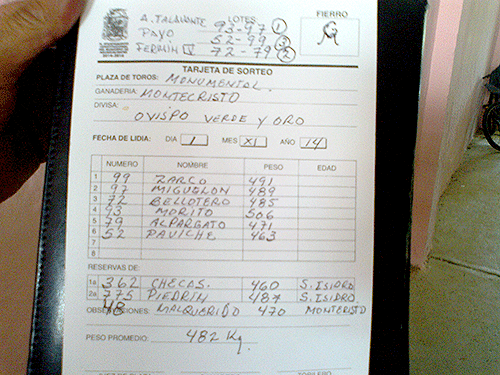 LOTES FIERRO
A. TALAVANTE 93-97 1
PAYO 52-99 3
FERMIN 72-79 2
TARJETA DE SORTEO
PLAZA DE TOROS: MONUMENTAL
GANADERIA: MONTECRISTO
DIVISA:
OVISPO VERDE Y ORO
FECHA DE LIDIA: DIA 1 MES XI AÑO 14
NUMERO NOMBRE PESO EDAD
1 99 ZARCO 491
2 97 MIGUELON 489
3 72 BELLOTERO 485
4 93 MORITO 506
5 79 ALPARGATO 471
6 52 PAVICHE 463
7
8
RESERVAS DE:
1a 362 CHECAS. 460 S. ISIDRO
2a 775 PIEDRIN 487 S. ISIDRO
OBSERVACIONES: 48 MALQUERIDO 470 MONTERISTO
PESO PROMEDIO: 482 Kg.